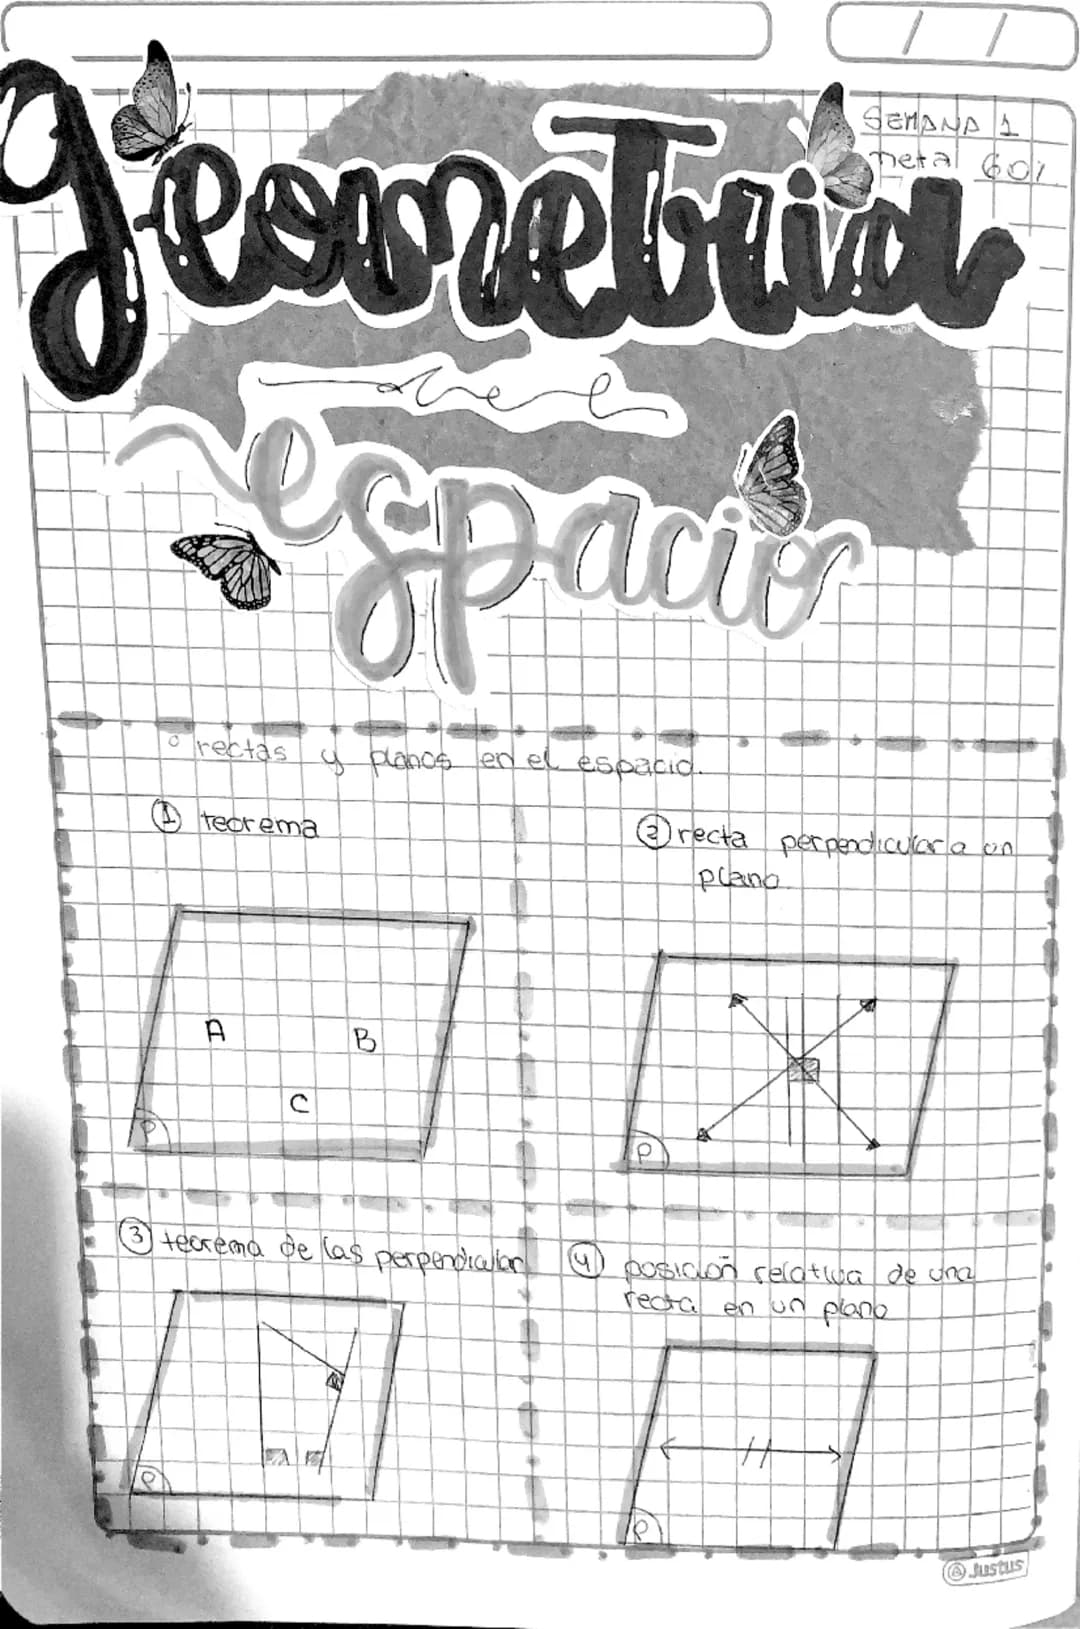 SEMANA 1
meta 60%
geometria
del
espacio
rectas y planos en el espacio.
1 teorema
A
B
C
P
2 recta perpendicular a un
plano.
P
3 teorema de las perpendicular
P
4 posición relativa de una
recta en un plano
P
Justus